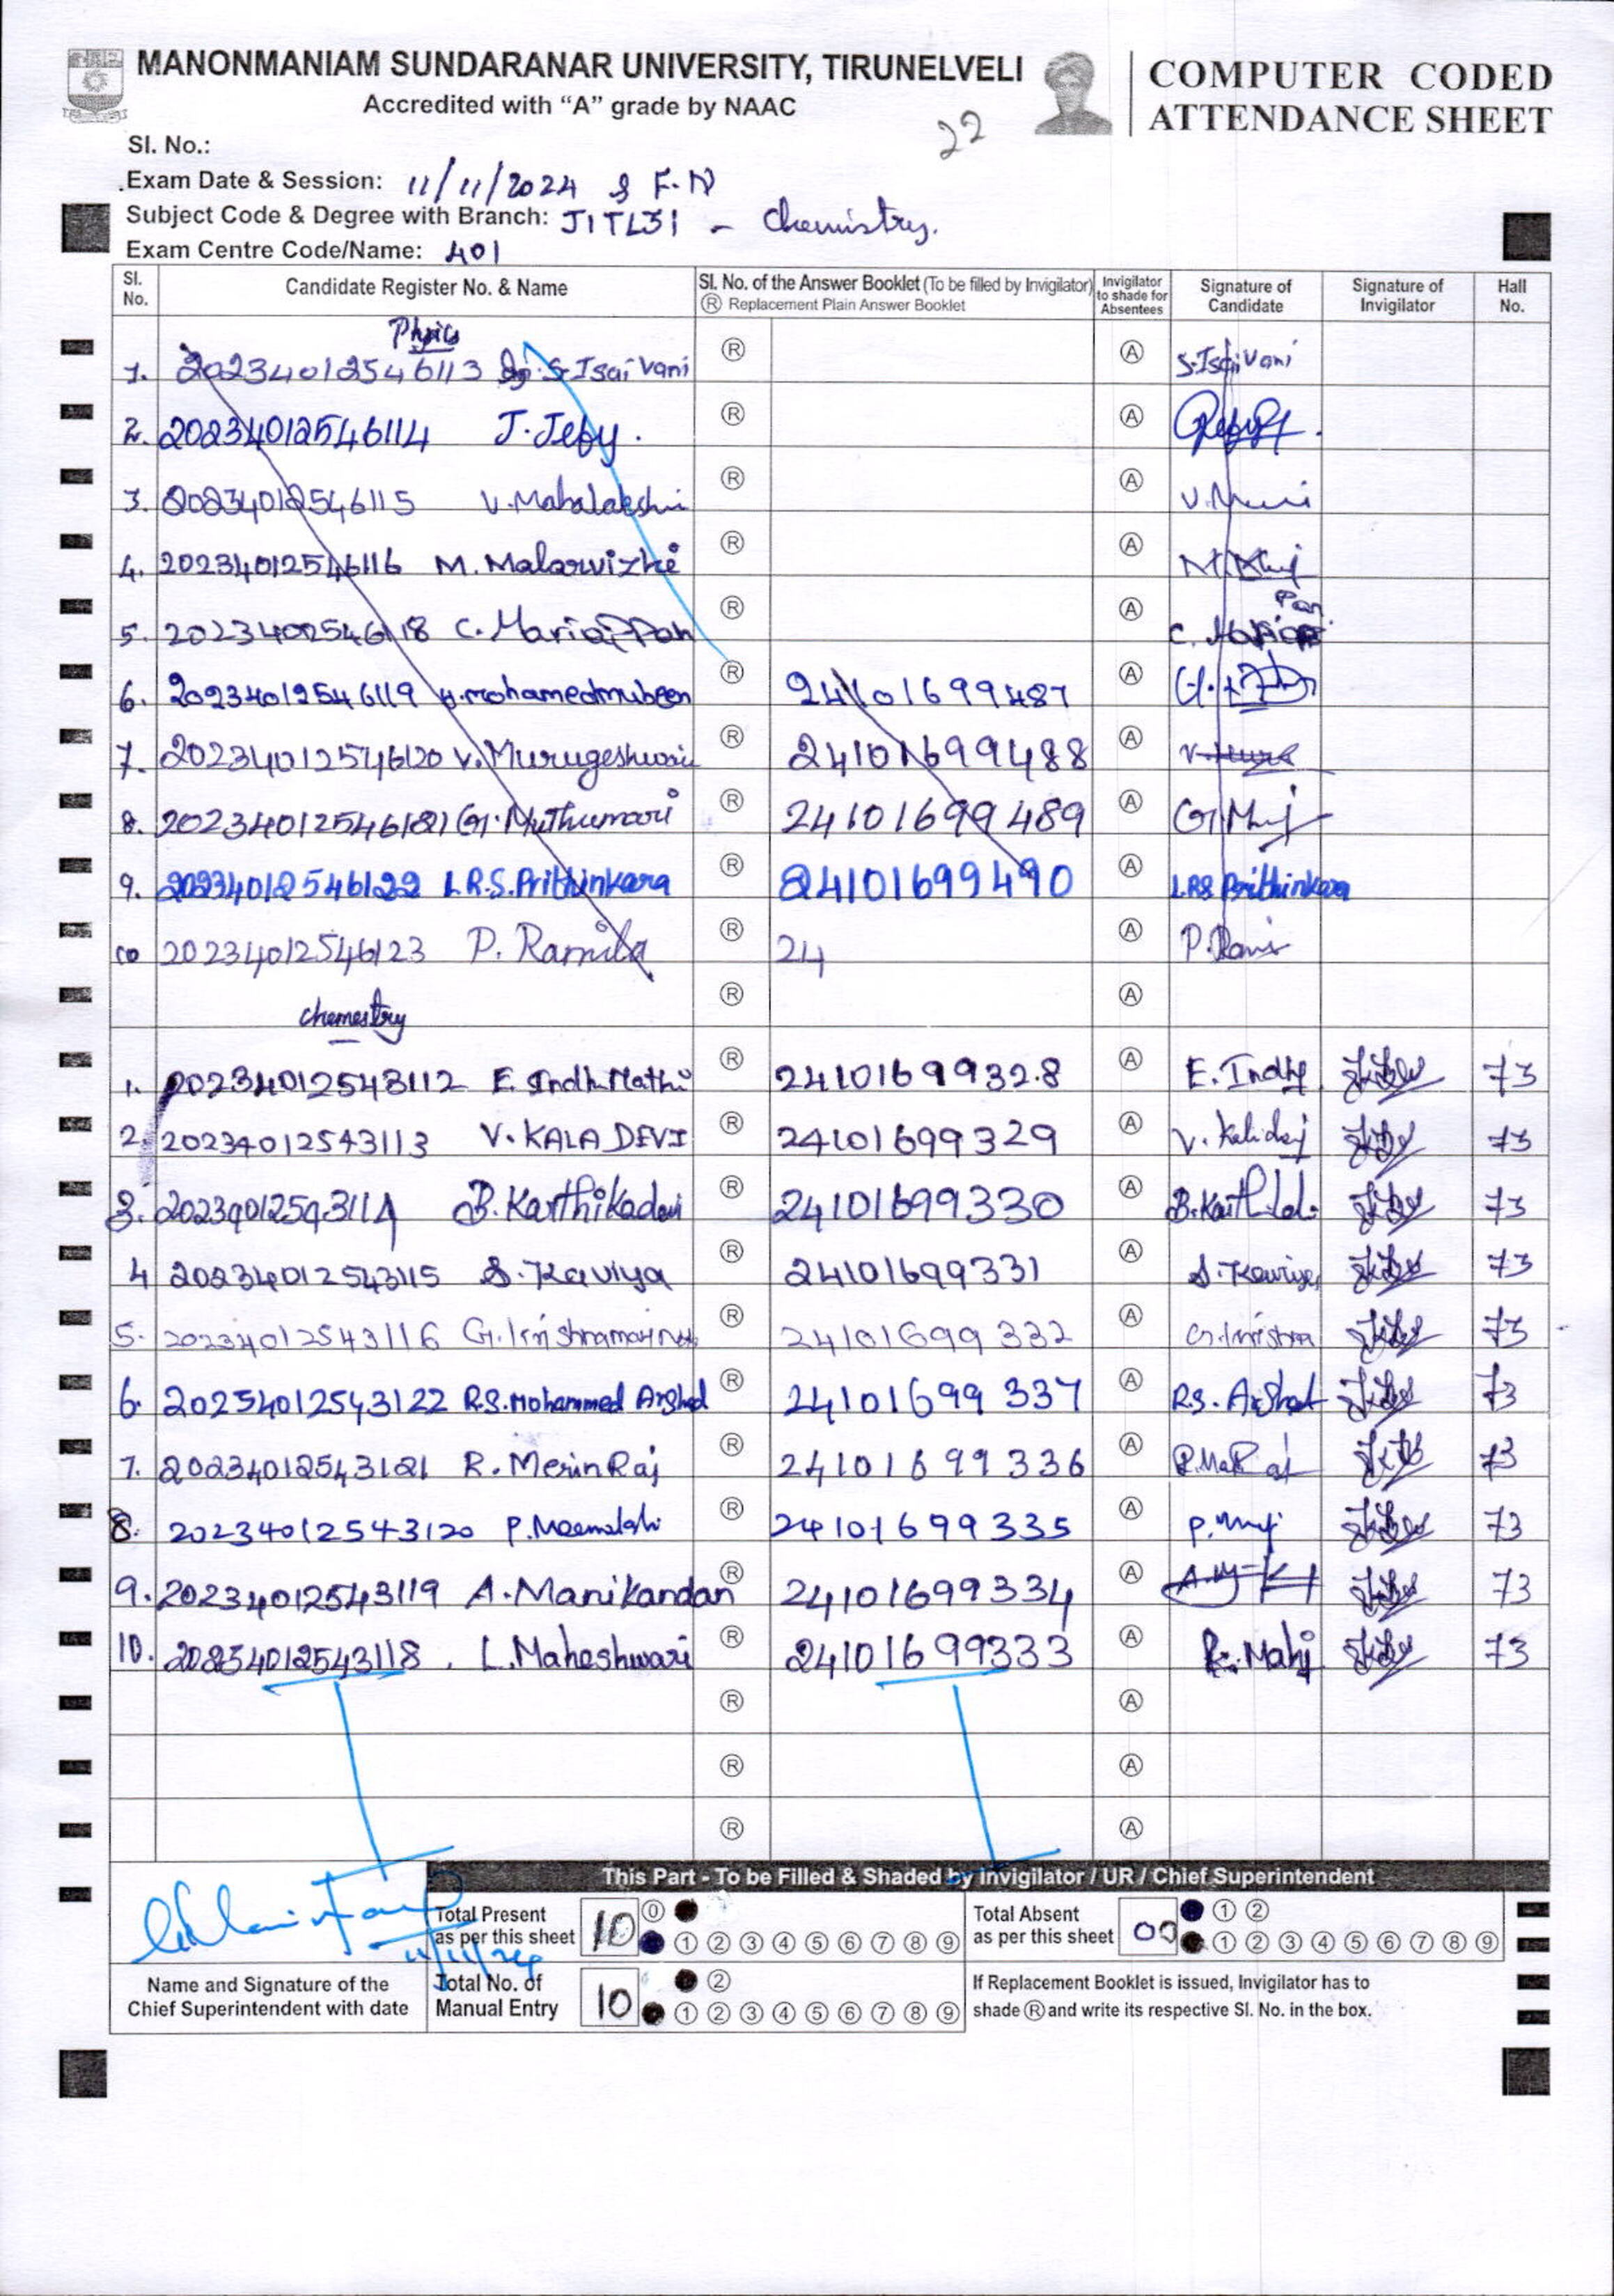 MANONMANIAM SUNDARANAR UNIVERSITY, TIRUNELVELI
Accredited with “A” grade by NAAC
COMPUTER CODED
ATTENDANCE SHEET
22
Sl. No.:
Exam Date & Session: 11/11/2024 & F.N
Subject Code & Degree with Branch: JITL31 - Chemistry.
Exam Centre Code/Name: 401
Sl. No. Candidate Register No. & Name Sl. No. of the Answer Booklet (To be filled by Invigilator) Ⓡ Replacement Plain Answer Booklet Invigilator to shade for Absentees Signature of Candidate Signature of Invigilator Hall No.
Physics
1. 20234012546113 S. Isai Vani Ⓡ Ⓐ S.Isai Vani
2. 20234012546114 J. Jeby. Ⓡ Ⓐ
3. 20234012546115 V. Mahalakshi Ⓡ Ⓐ
4. 20234012546116 M. Malarvizhi Ⓡ Ⓐ
5. 20234002546118 C. Mariappan Ⓡ Ⓐ
6. 20234012546119 mohamedmubeen Ⓡ 24101699487 Ⓐ
7. 20234012546120 V. Murugeshwari Ⓡ 24101699488 Ⓐ
8. 20234012546121 G. Muthumari Ⓡ 24101699489 Ⓐ
9. 20234012546122 L.R.S. Prithinkara Ⓡ 24101699490 Ⓐ L.R.S Prithinkara
10 20234012546123 P. Ramila Ⓡ 24 Ⓐ
chemestry Ⓡ Ⓐ
1. 20234012543112 E. IndhMathi Ⓡ 24101699328 Ⓐ E. Indhy 73
2. 20234012543113 V. KALA DEVI Ⓡ 24101699329 Ⓐ 73
3. 20234012543114 B. Karthikadevi Ⓡ 24101699330 Ⓐ 73
4 20234012543115 S. Kaviya Ⓡ 24101699331 Ⓐ S. Kaviya 73
5. 20234012543116 Ⓡ 24101699332 Ⓐ G. krishna 73
6. 20234012543122 R.S. Mohammed Arshad Ⓡ 24101699337 Ⓐ R.S. Arshad 73
7. 20234012543121 R. Merin Raj Ⓡ 24101699336 Ⓐ 73
8. 20234012543120 P. Meenalshi Ⓡ 24101699335 Ⓐ 73
9. 20234012543119 A. Manikandan Ⓡ 24101699334 Ⓐ 73
10. 20234012543118 . L. Maheshwari Ⓡ 24101699333 Ⓐ 73
Ⓡ Ⓐ
Ⓡ Ⓐ
Ⓡ Ⓐ
This Part - To be Filled & Shaded by Invigilator / UR / Chief Superintendent
11/11/24
Total Present as per this sheet 10 ⓪
① ② ③ ④ ⑤ ⑥ ⑦ ⑧ ⑨
Total Absent as per this sheet 00 ① ②
① ② ③ ④ ⑤ ⑥ ⑦ ⑧ ⑨
Name and Signature of the Chief Superintendent with date
Total No. of Manual Entry 10 ②
① ② ③ ④ ⑤ ⑥ ⑦ ⑧ ⑨
If Replacement Booklet is issued, Invigilator has to
shade Ⓡ and write its respective Sl. No. in the box.